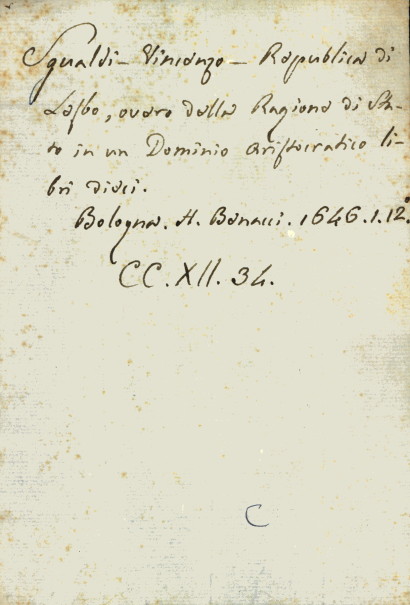 Sgualdi - Vincenzo - Republica di
Lesbo, overo della Ragione di Sta-
to in un Dominio aristocratico li-
bri dieci.
Bologna. H. Benacci. 1646. 1. 12°
CC. XII. 34.
C